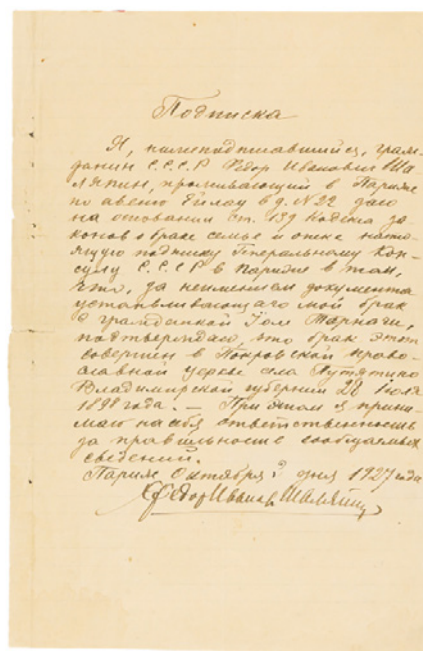 Подписка
Я, нижеподписавшийся, граж-
данин С.С.С.Р Федор Иванович Ша-
ляпин, проживающий в Париже
по авеню Эйлау в д. № 22 даю
на основании ст. 139 Кодекса за-
конов о браке семье и опеке насто-
ящую подписку Генеральному Кон-
сулу С.С.С.Р в Париже в том,
что, за неимением документа
устанавливающаго мой брак
с гражданкой Иоле Торнаги,
подтверждаю, что брак этот
совершен в Покровской право-
славной церкве села Путятино
Владимирской губернии 28 Июля
1898 года. — При этом я прини-
маю на себя ответственность
за правильность сообщаемых
сведений.
Париж Октября дня 1927 года
Федор Иванов Шаляпин